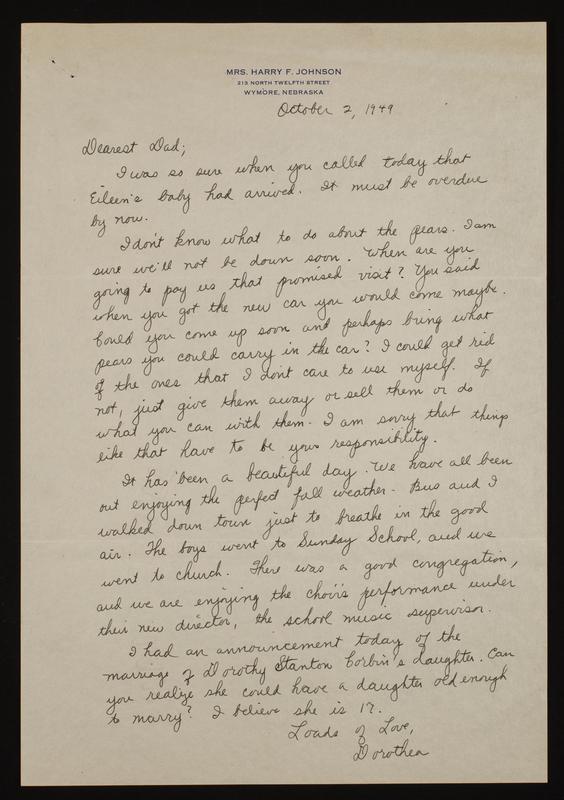 MRS. HARRY F. JOHNSON
213 NORTH TWELFTH STREET
WYMORE, NEBRASKA
October 2, 1949
Dearest Dad;
I was so sure when you called today that
Eileen's baby had arrived. It must be overdue
by now.
I don't know what to do about the pears. I am
sure we'll not be down soon. When are you
going to pay us that promised visit? You said
when you got the new car you would come maybe.
Could you come up soon and perhaps bring what
pears you could carry in the car? I could get rid
of the ones that I don't care to use myself. If
not, just give them away or sell them or do
what you can with them. I am sorry that things
like that have to be your responsibility.
It has been a beautiful day. We have all been
out enjoying the perfect fall weather. Bus and I
walked down town just to breathe in the good
air. The boys went to Sunday School, and we
went to church. There was a good congregation,
and we are enjoying the choir's performance under
their new director, the school music supervisor.
I had an announcement today of the
marriage of Dorothy Stanton Corbin's daughter. Can
you realize she could have a daughter old enough
to marry? I believe she is 17.
Loads of Love,
Dorothea